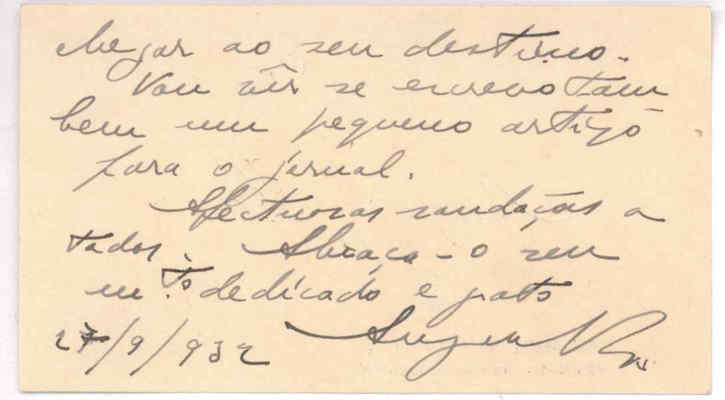 chegar ao seu destino.
Vou vêr se escrevo tam
bem um pequeno artigo
para o jornal.
Afectuosas saudações a
todos. Abraça-o seu
mto dedicado e grato
27/9/932